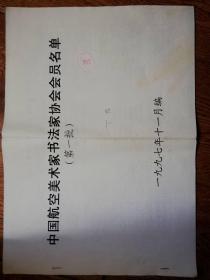 中国航空美术家书法家协会会员名单
（第一批）
一九九七年十一月编